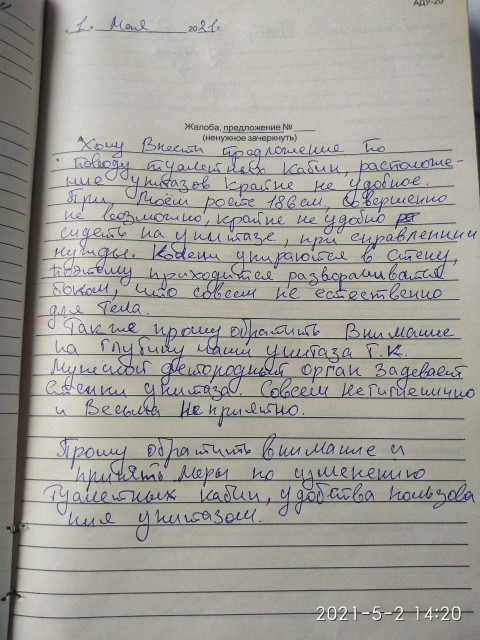 АДУ-20
"1" Мая 2021 г.
Жалоба, предложение №
(ненужное зачеркнуть)
Хочу Внести предложение по
поводу туалетных кабин, расположе-
ние унитазов крайне не удобное.
При моём росте 188 см, совершенно
не возможно, крайне не удобно
сидеть на унитазе, при справлении
нужды. Колени упираются в стену,
поэтому проходится разворачиватся
боком, что совсем не естественно
для тела.
Также прошу обратить Внимание
на глубину чаши унитаза т.к.
Мужской детородный орган Задевает
стенки унитаза. Совсем негигиенично
и Весьма Неприятно.
Прошу обратить внимание и
принять меры по изменению
туалетных кабин, удобства пользова
ния унитазом.
2021-5-2 14:20